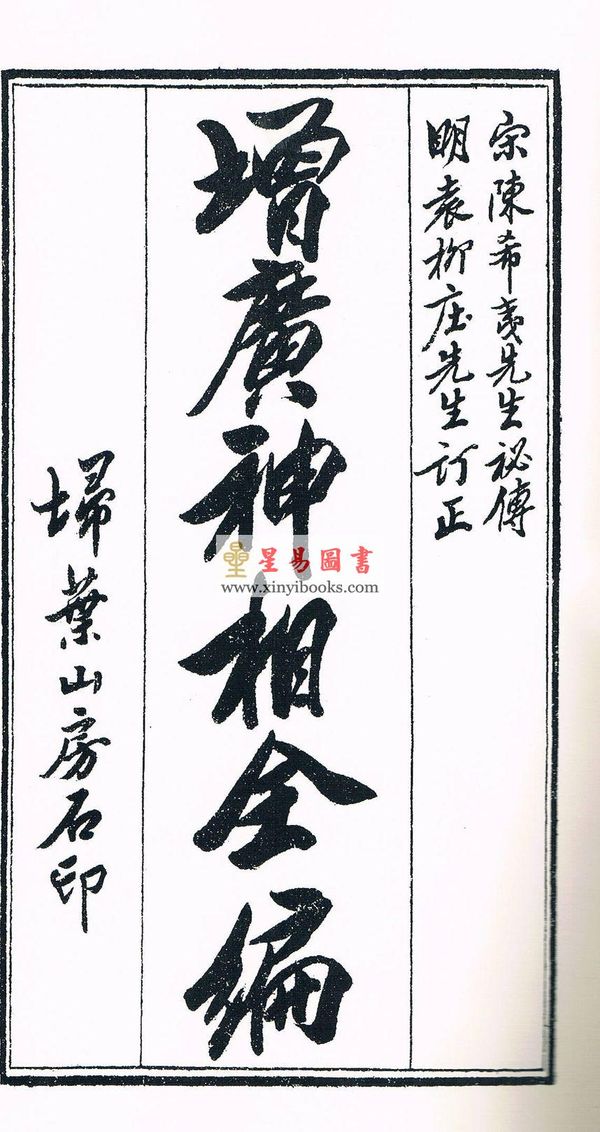 宋陳希夷先生祕傳
明袁柳庄先生訂正
增廣神相全編
埽葉山房石印
星易圖書
www.xinyibooks.com